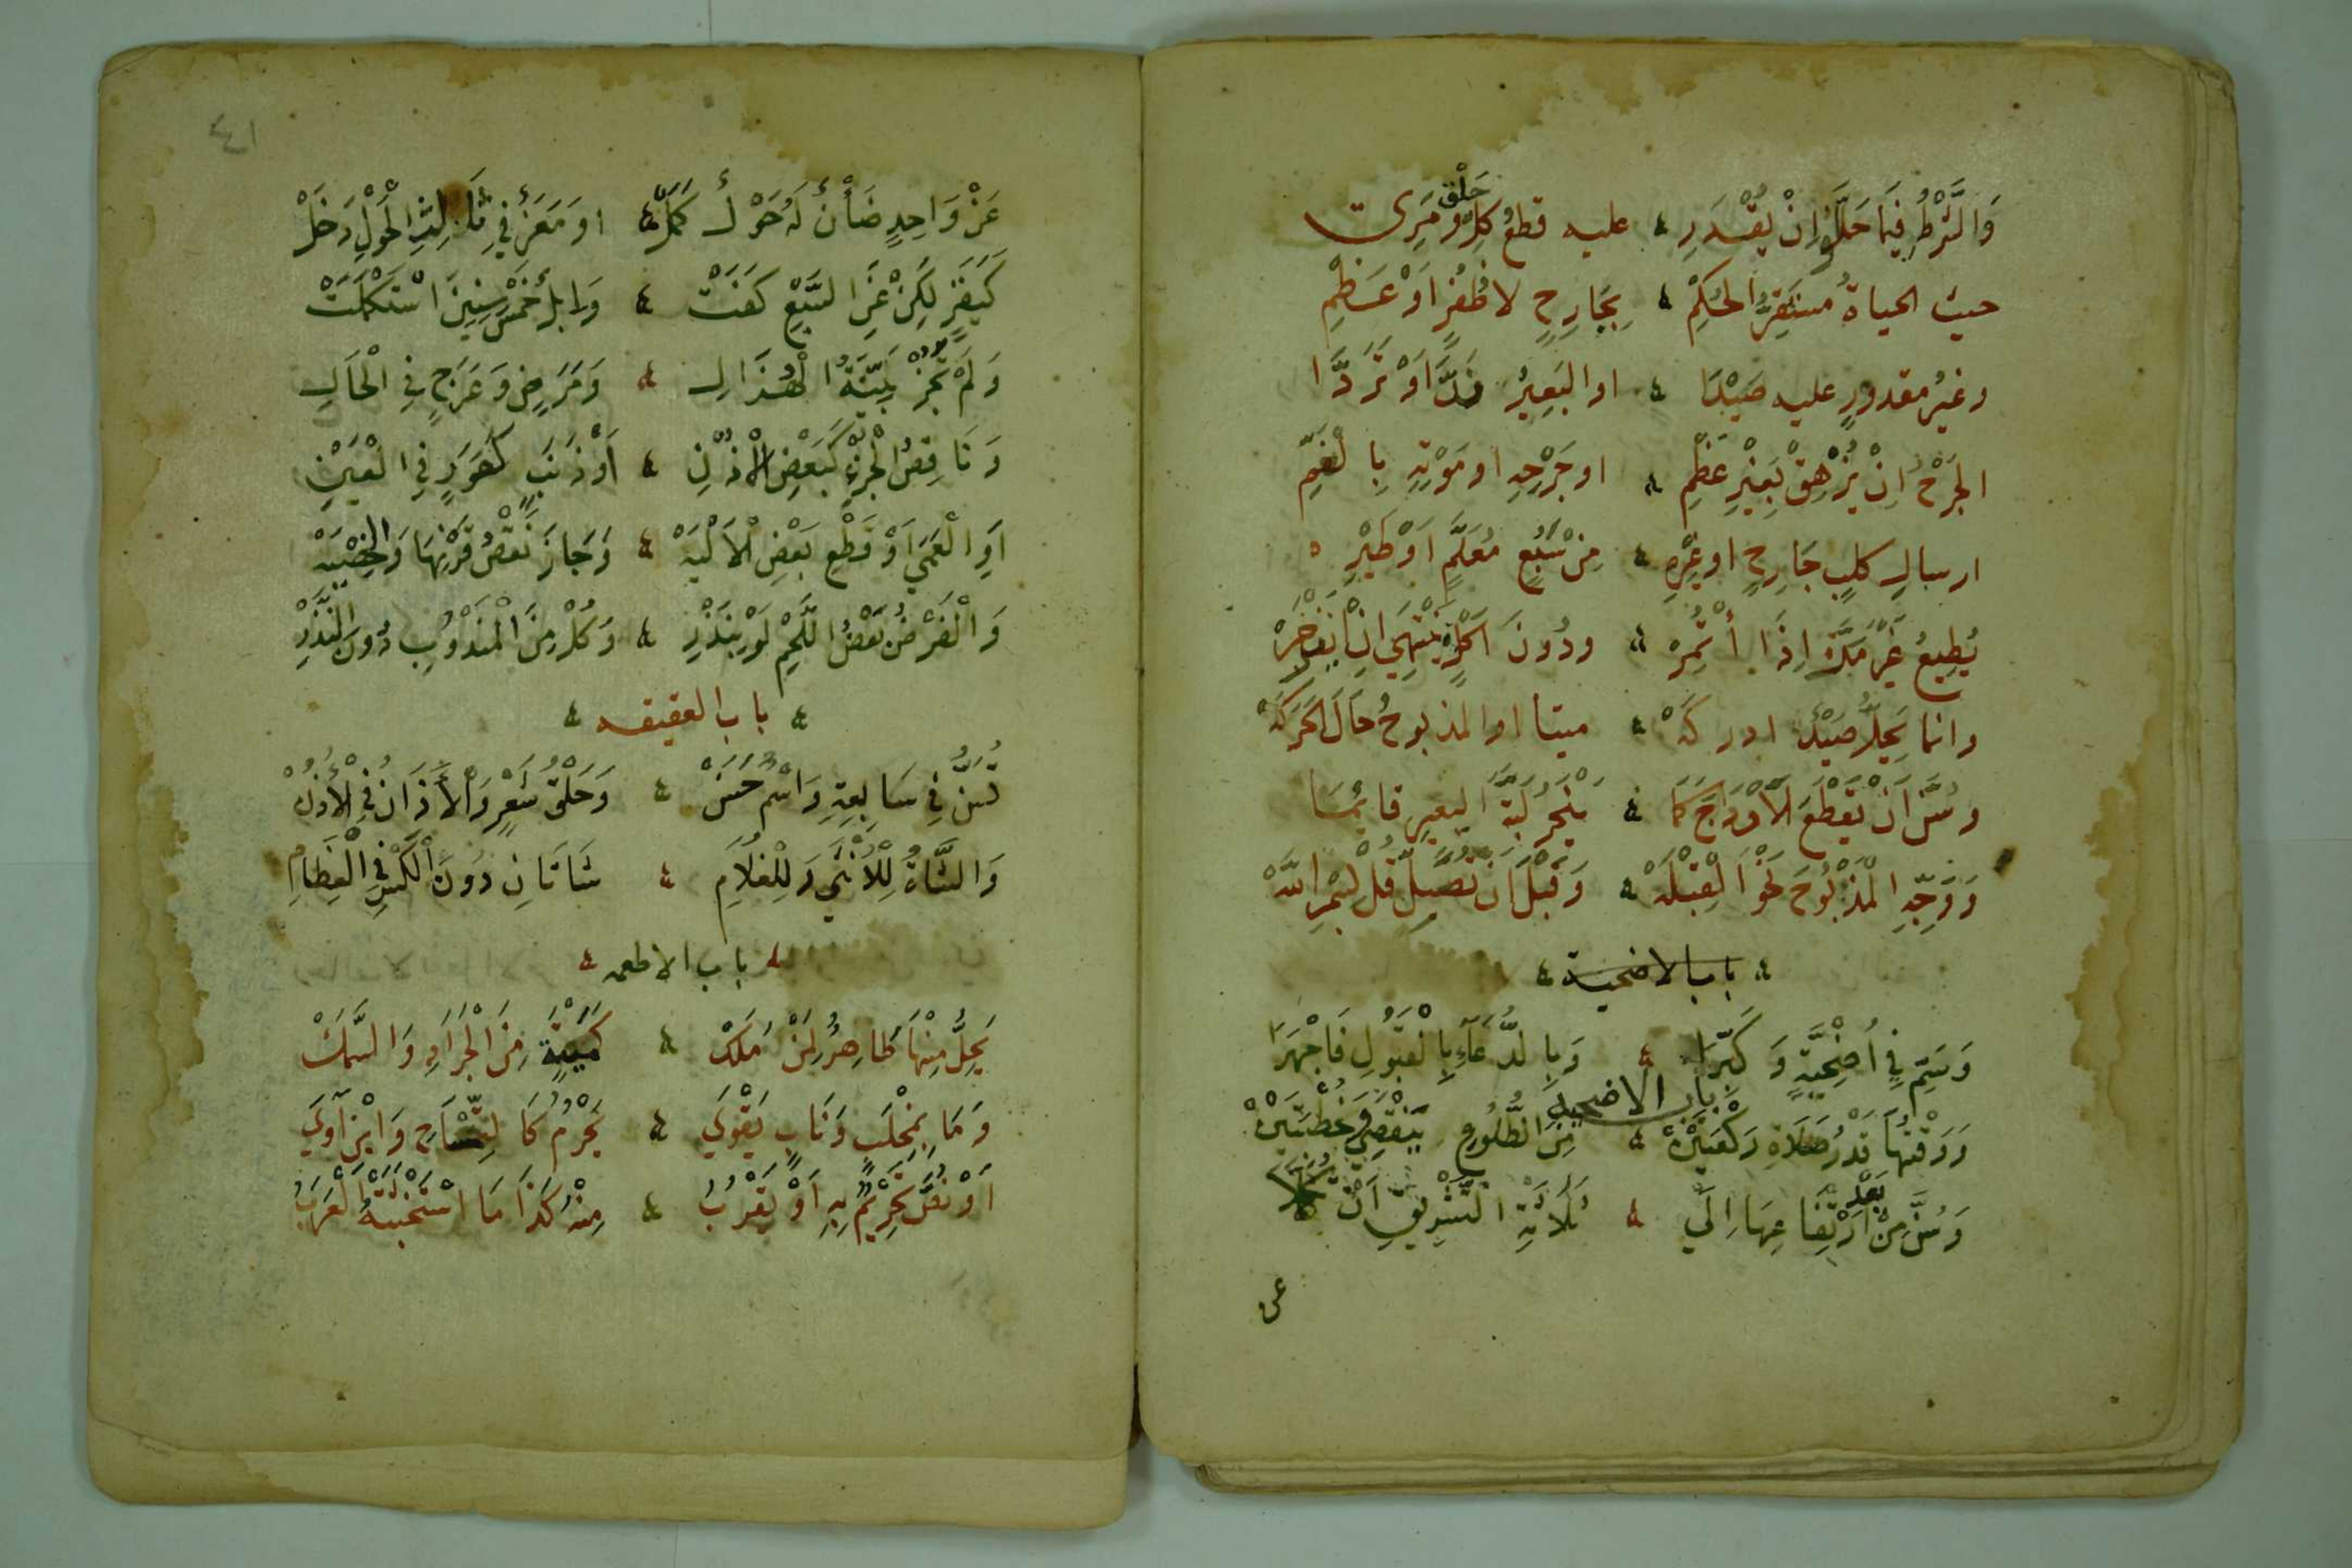 وَالشَّرْطُ فِيمَا حَلَّلُوا إِنْ يُقْدَرِ ۽ عليه قطعُ كلِّ حَلْقٍ ومَرِي
حيث الحياةُ مستقِرُّ الحُكْمِ ۽ بِجَارِحٍ لا ظُفُرٍ اَوْ عَظْمِ
وغيرُ مقدورٍ عليه صَيْدَا ۽ اوا لبَعِيرُ نَدَّ اَوْ تَرَدَّا
الجَرْحُ اِنْ يُزْهِقْ بِغَيْرِ عَظْمِ ۽ او جَرْحِهِ او مَوْتِهِ بِالْغَمِّ
ارسالِ كلبٍ جَارِحٍ او غَيْرِهِ ۽ مِنْ سَبُعٍ مُعَلَّمٍ اَوْ طَيْرِهِ
يُطِيعُ غَيْرَ مَرَّةٍ اِذَا اُتُمِرْ ۽ ودُونَ اَكْلٍ يَنْتَهِي اِنْ يَنْزَجِرْ
وانما يَحِلُّ صَيْدٌ ادركَهْ ۽ ميتا اوا لمذبوحُ حَالَ الحَرَكَهْ
وسُنَّ اَنْ تَقْطَعَ الْاَوْدَاجَ كَمَا ۽ يَنْحَرُ لَبَّةَ البعيرِ قائمَا
وَوَجِّهِ الْمَذْبُوحَ نَحْوَ الْقِبْلَهْ ۽ وَقَبْلَ اَنْ تُصَلِّ قُلْ بِسْمِ اللَّهْ
۽ باب الاضحية ۽
وَسَمِّ فِي اُضْحِيَّةٍ وَكَبِّرَا ۽ وَبِالدُّعَاءِ بِالْقَبُولِ فَاجْهَرَا
باب الاضحية
وَوَقْتُهَا قَدْرُ صَلَاةِ رَكْعَتَيْنْ ۽ مِنَ الطُّلُوعِ يَنْقَضِي وَخُطْبَتَيْنْ
وَسُنَّ مِنْ بَعْدِ ارْتِفَاعِهَا اِلَى ۽ ثَلَاثَةِ التَّشْرِيقِ اَنْ
عن
٤١
عَنْ وَاحِدٍ ضَأْنٌ لَهُ حَوْلٌ كَمَلْ ۽ او مَعَزٌ فِي ثَالِثِ الْحَوْلِ دَخَلْ
كَبَقَرٍ لَكِنْ عَنِ السَّبْعِ كَفَتْ ۽ وَابِلٌ خَمْسَ سِنِينَ اسْتَكْمَلَتْ
وَلَمْ تَجُزْ بَيِّنَةُ الْهُزَالِ ۽ وَمَرَضٍ وَعَرَجٍ فِي الْحَالِ
وَنَاقِصُ الْجُزْءِ كَبَعْضِ الْاُذْنِ ۽ اَوْ ذَنَبٍ كَعَوَرٍ فِي الْعَيْنِ
اَوِ الْعَمَى اَوْ قَطْعِ بَعْضِ الْاَلْيَهْ ۽ وَجَازَ نَقْصُ قَرْنِهَا وَالْخُصْيَهْ
وَالْفَرْضُ بَعْضُ اللَّحْمِ لَوْ بِنَذْرِ ۽ وَكُلْ مِنَ الْمَنْدُوبِ دُونَ النَّذْرِ
۽ باب العقيقه ۽
تُسَنُّ فِي سَابِعِهِ وَاسْمٌ حَسَنْ ۽ وَحَلْقُ شَعْرٍ وَالْأَذَانُ فِي الْأُذُنْ
وَالشَّاةُ لِلْأُنْثَى وَلِلْغُلَامِ ۽ شَاتَانِ دُونَ الْكَسْرِ فِي الْعِظَامِ
۽ باب الاطعمه ۽
يَحِلُّ مِنْهَا طَاهِرٌ لِمَنْ مَلَكْ ۽ كَمَيْتَةٍ مِنَ الْجَرَادِ وَالسَّمَكْ
وَمَا بِمِخْلَبٍ وَنَابٍ يَقْوَى ۽ يَحْرُمُ كَالتِّمْسَاحِ وَابْنِ آوَى
اَوْ نَصُّ تَحْرِيمٍ بِهِ اَوْ يَقْرُبُ ۽ مِنْهُ كَذَا مَا اسْتَخْبَثَتْهُ الْعَرَبُ